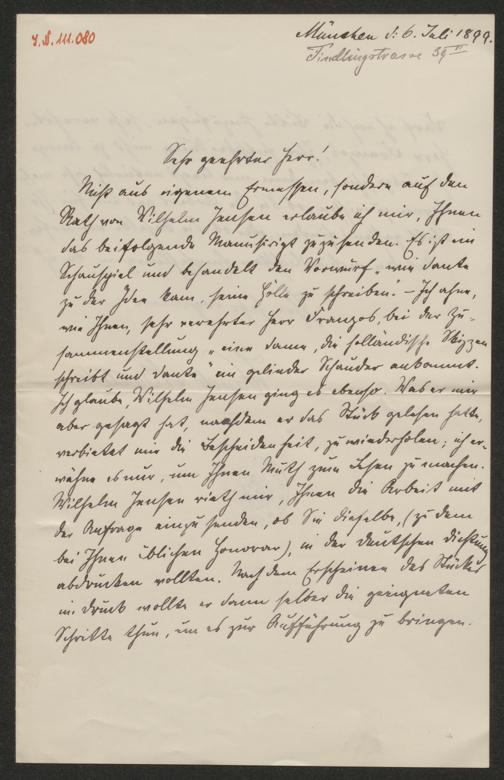 I.N. 111.080
München d. 6. Juli 1899.
Findlingstrasse 39 II
Sehr geehrter Herr!
Nicht aus eigenem Ermessen, sondern auf den
Rath von Wilhelm Jensen erlaube ich mir, Ihnen
das beifolgende Manuscript zuzusenden. Es ist ein
Schauspiel und behandelt den Vorwurf, „wie Dante
zu der Idee kam, seine Hölle zu schreiben." – Ich ahne,
wie Ihnen, sehr verehrter Herr Franzos, bei der Zu-
sammenstellung „eine Dame, die holländische Skizzen
schreibt und Dante" ein gelinder Schauder ankommt.
Ich glaube, Wilhelm Jensen ging es ebenso. Was er mir
aber gesagt hat, nachdem er das Stück gelesen hatte,
verbietet mir die Bescheidenheit, zu wiederholen; ich er-
wähne es nur, um Ihnen Muth zum Lesen zu machen.
Wilhelm Jensen rieth mir, Ihnen die Arbeit mit
der Anfrage einzusenden, ob Sie dieselbe, (zu dem
bei Ihnen üblichen Honorar), in der deutschen Dichtung
abdrucken wollten. Nach dem Erscheinen des Stückes
im Druck wollte er dann selber die geeigneten
Schritte thun, um es zur Aufführung zu bringen.